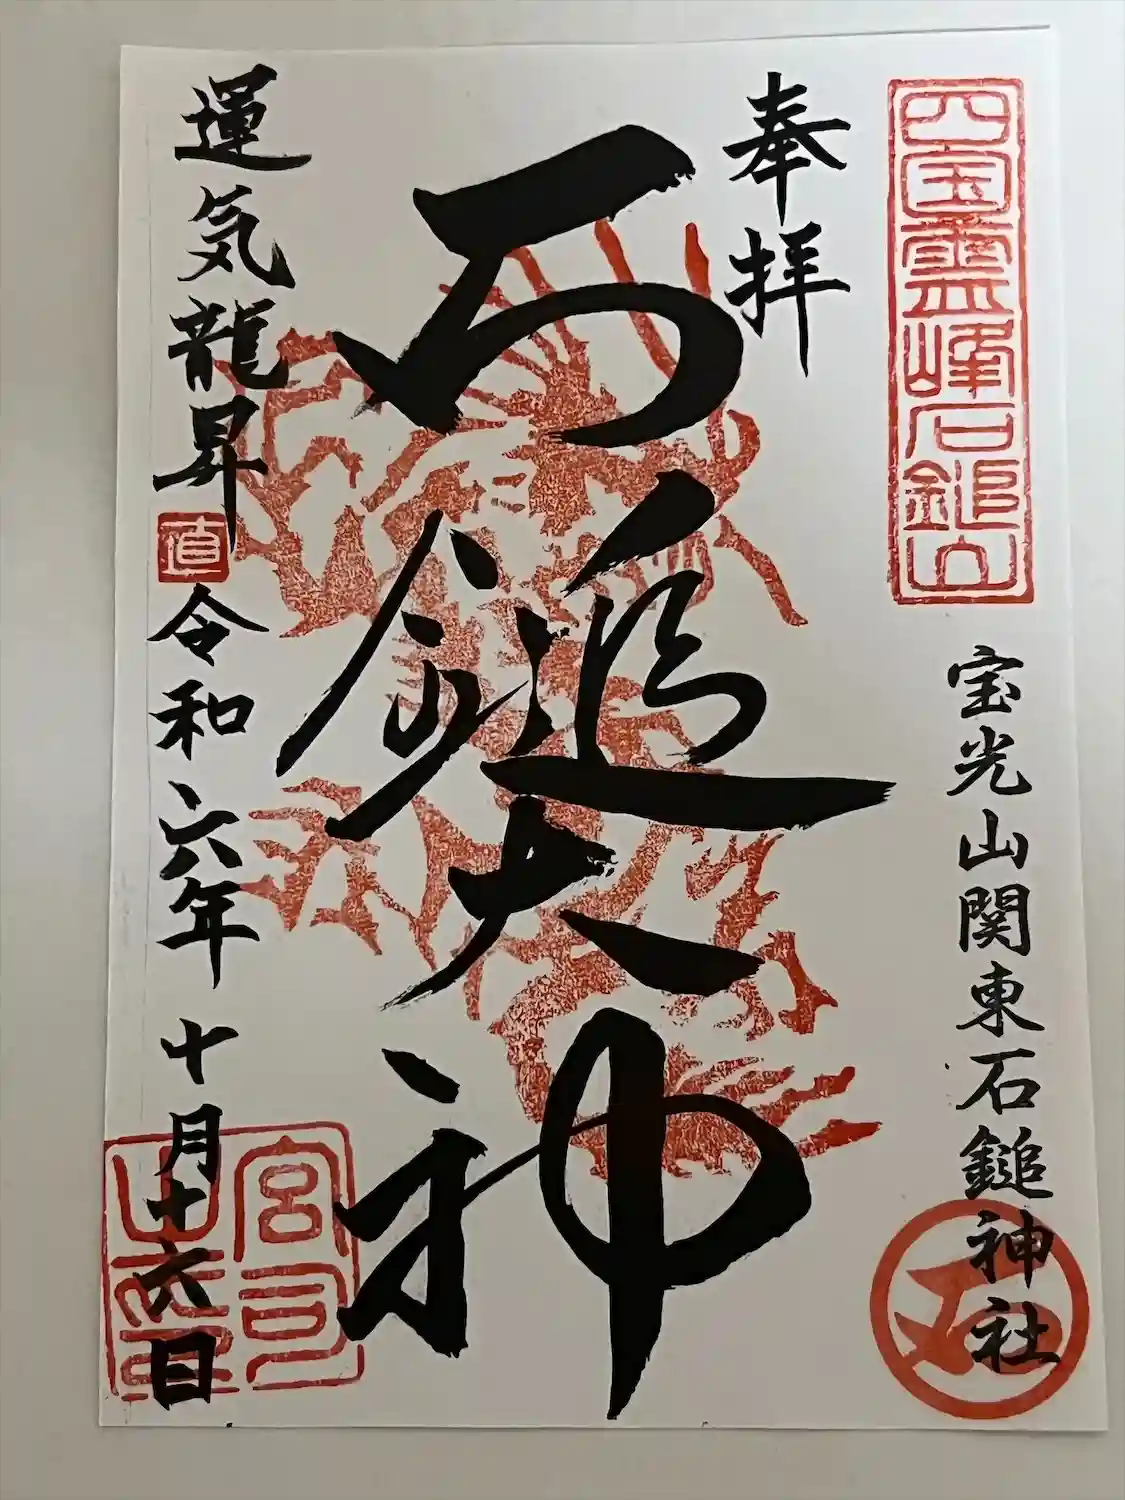 四国霊峰石鎚山
宝光山関東石鎚神社
奉拝
石鎚大神
運気龍昇
直
令和六年十月十六日
宮司
之印